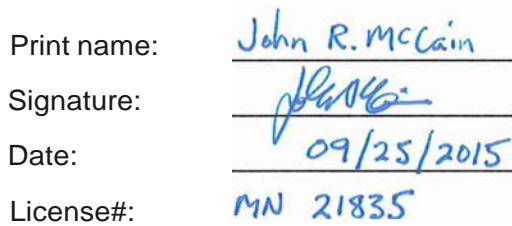 Print name: John R. McCain
Signature:
Date: 09/25/2015
License#: MN 21835